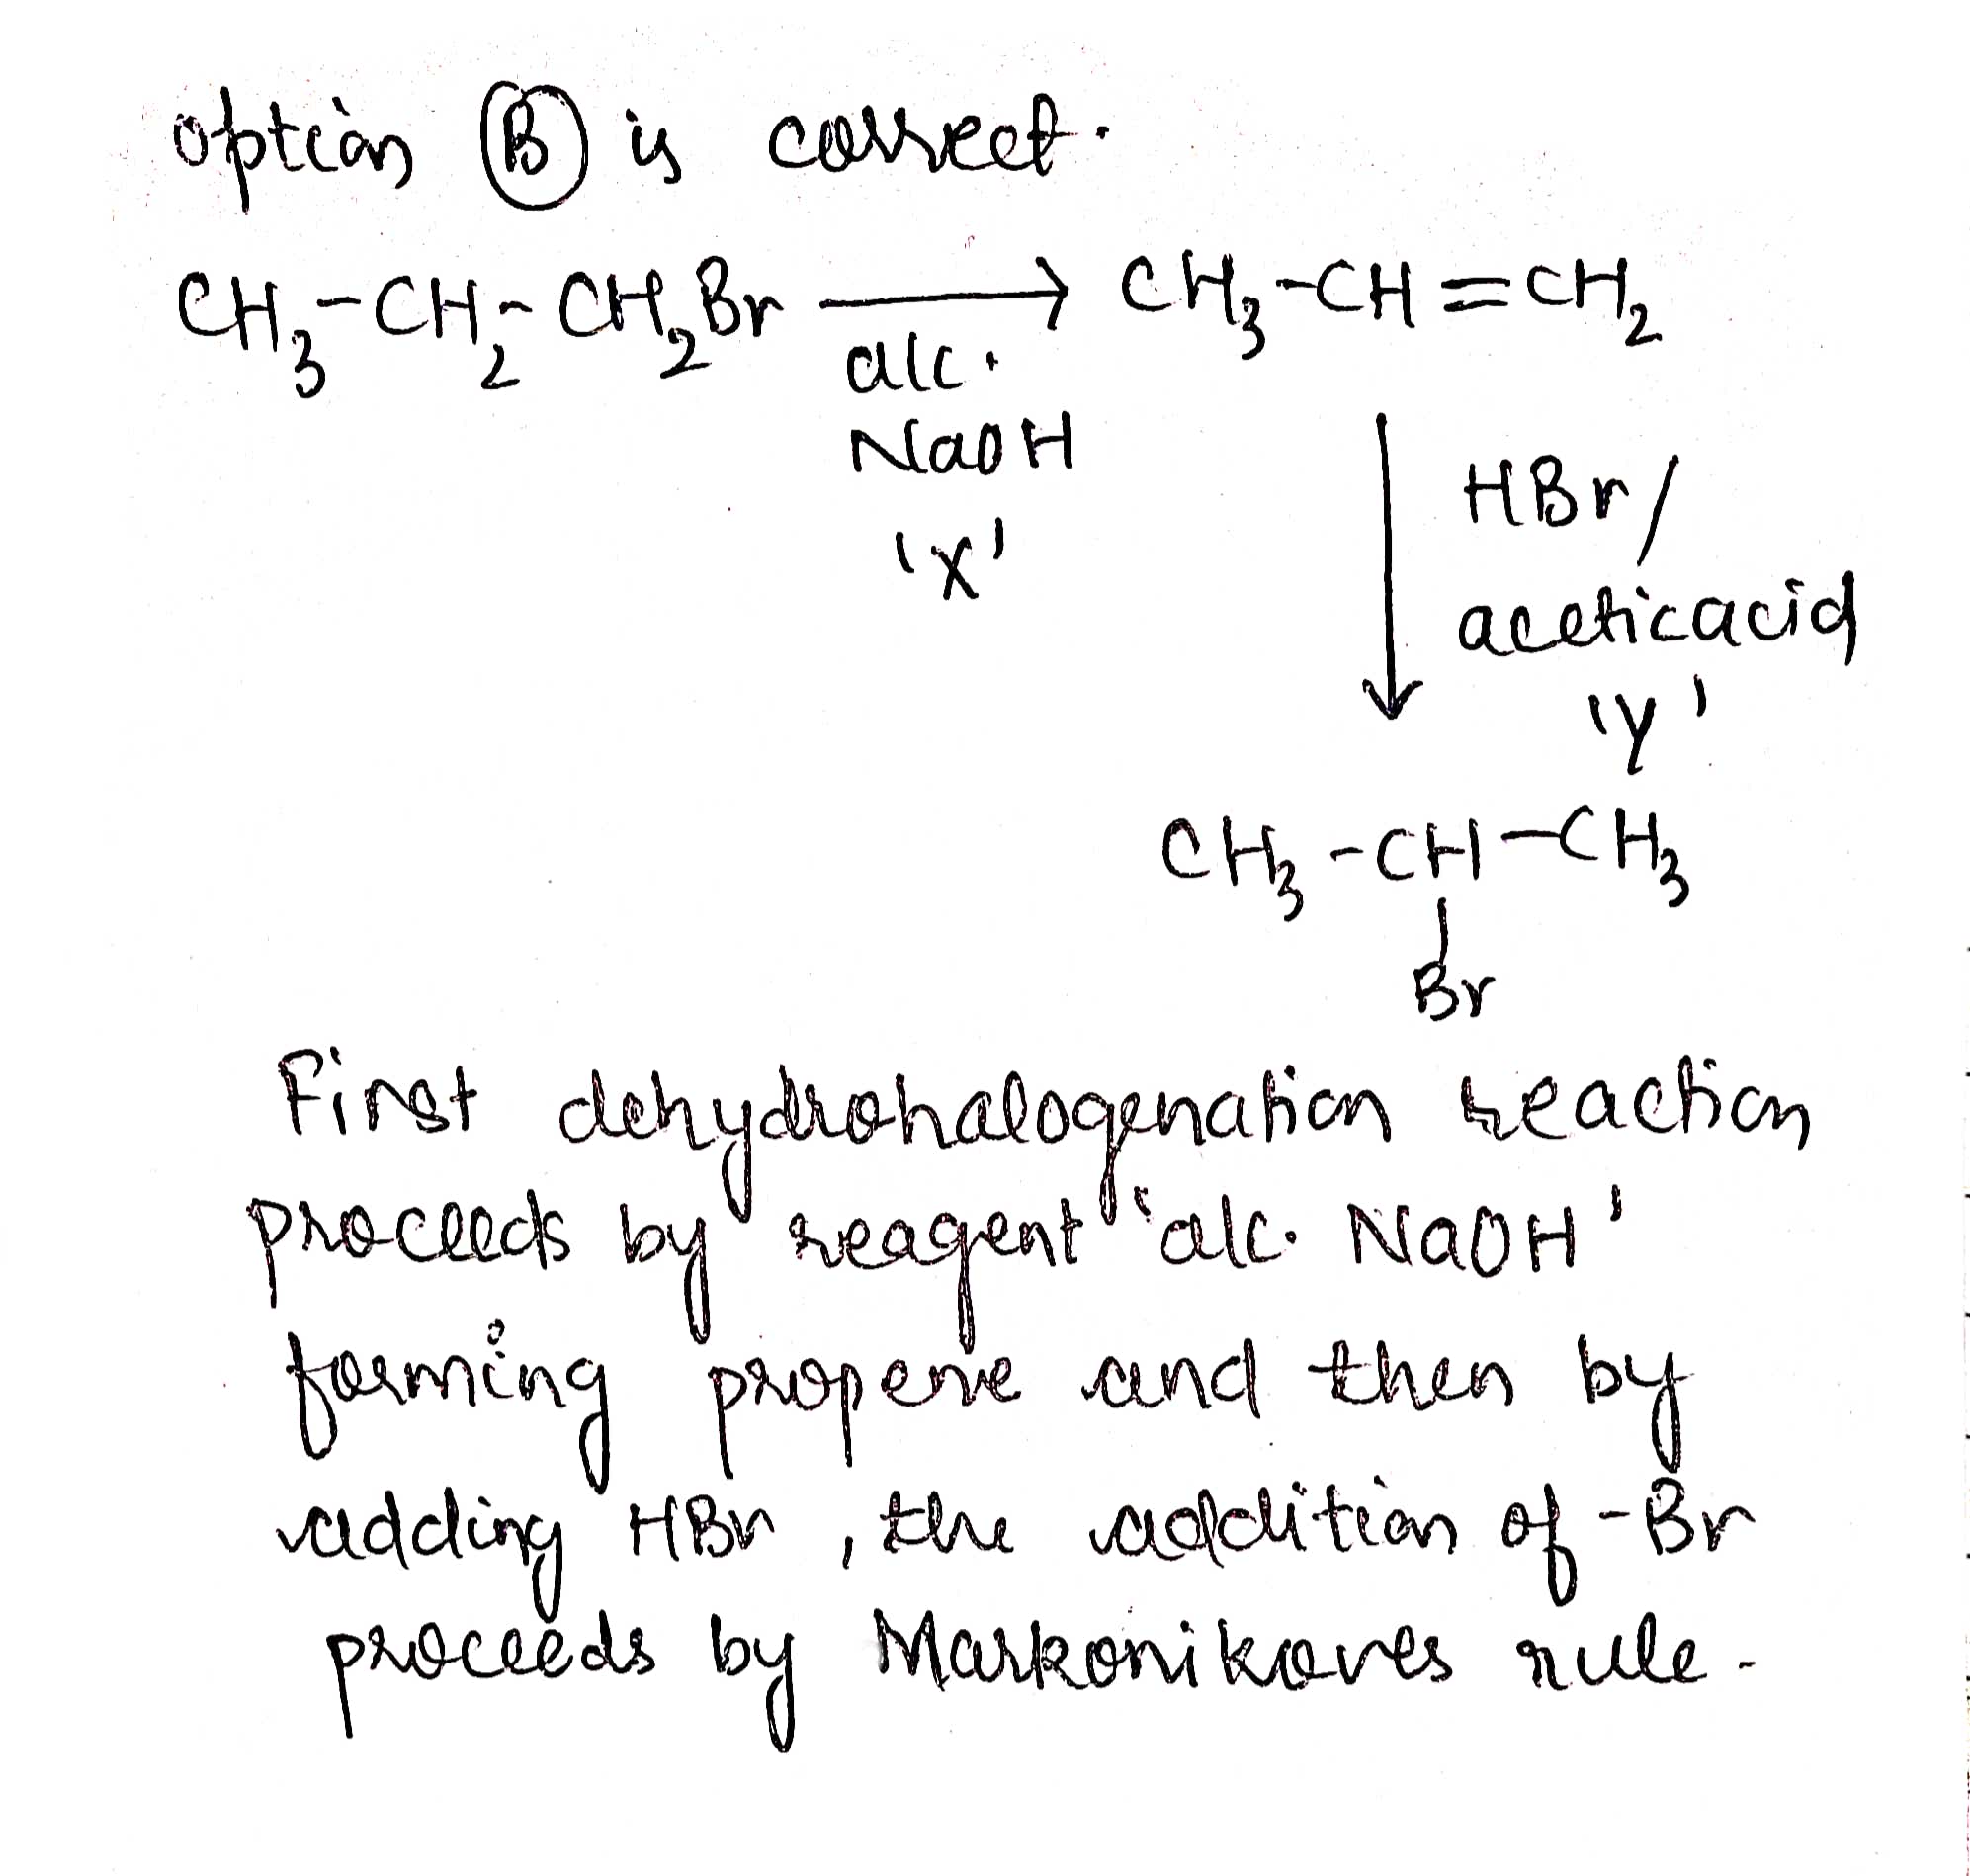 option (B) is correct.
CH₃-CH₂-CH₂Br ⟶ CH₃-CH=CH₂
alc.
NaOH
'X'
HBr/
aceticacid
'Y'
CH₃-CH-CH₃
Br
First dehydrohalogenation reaction
proceeds by reagent 'alc. NaOH'
forming propene and then by
adding HBr, the addition of -Br
proceeds by Markonikoves rule.